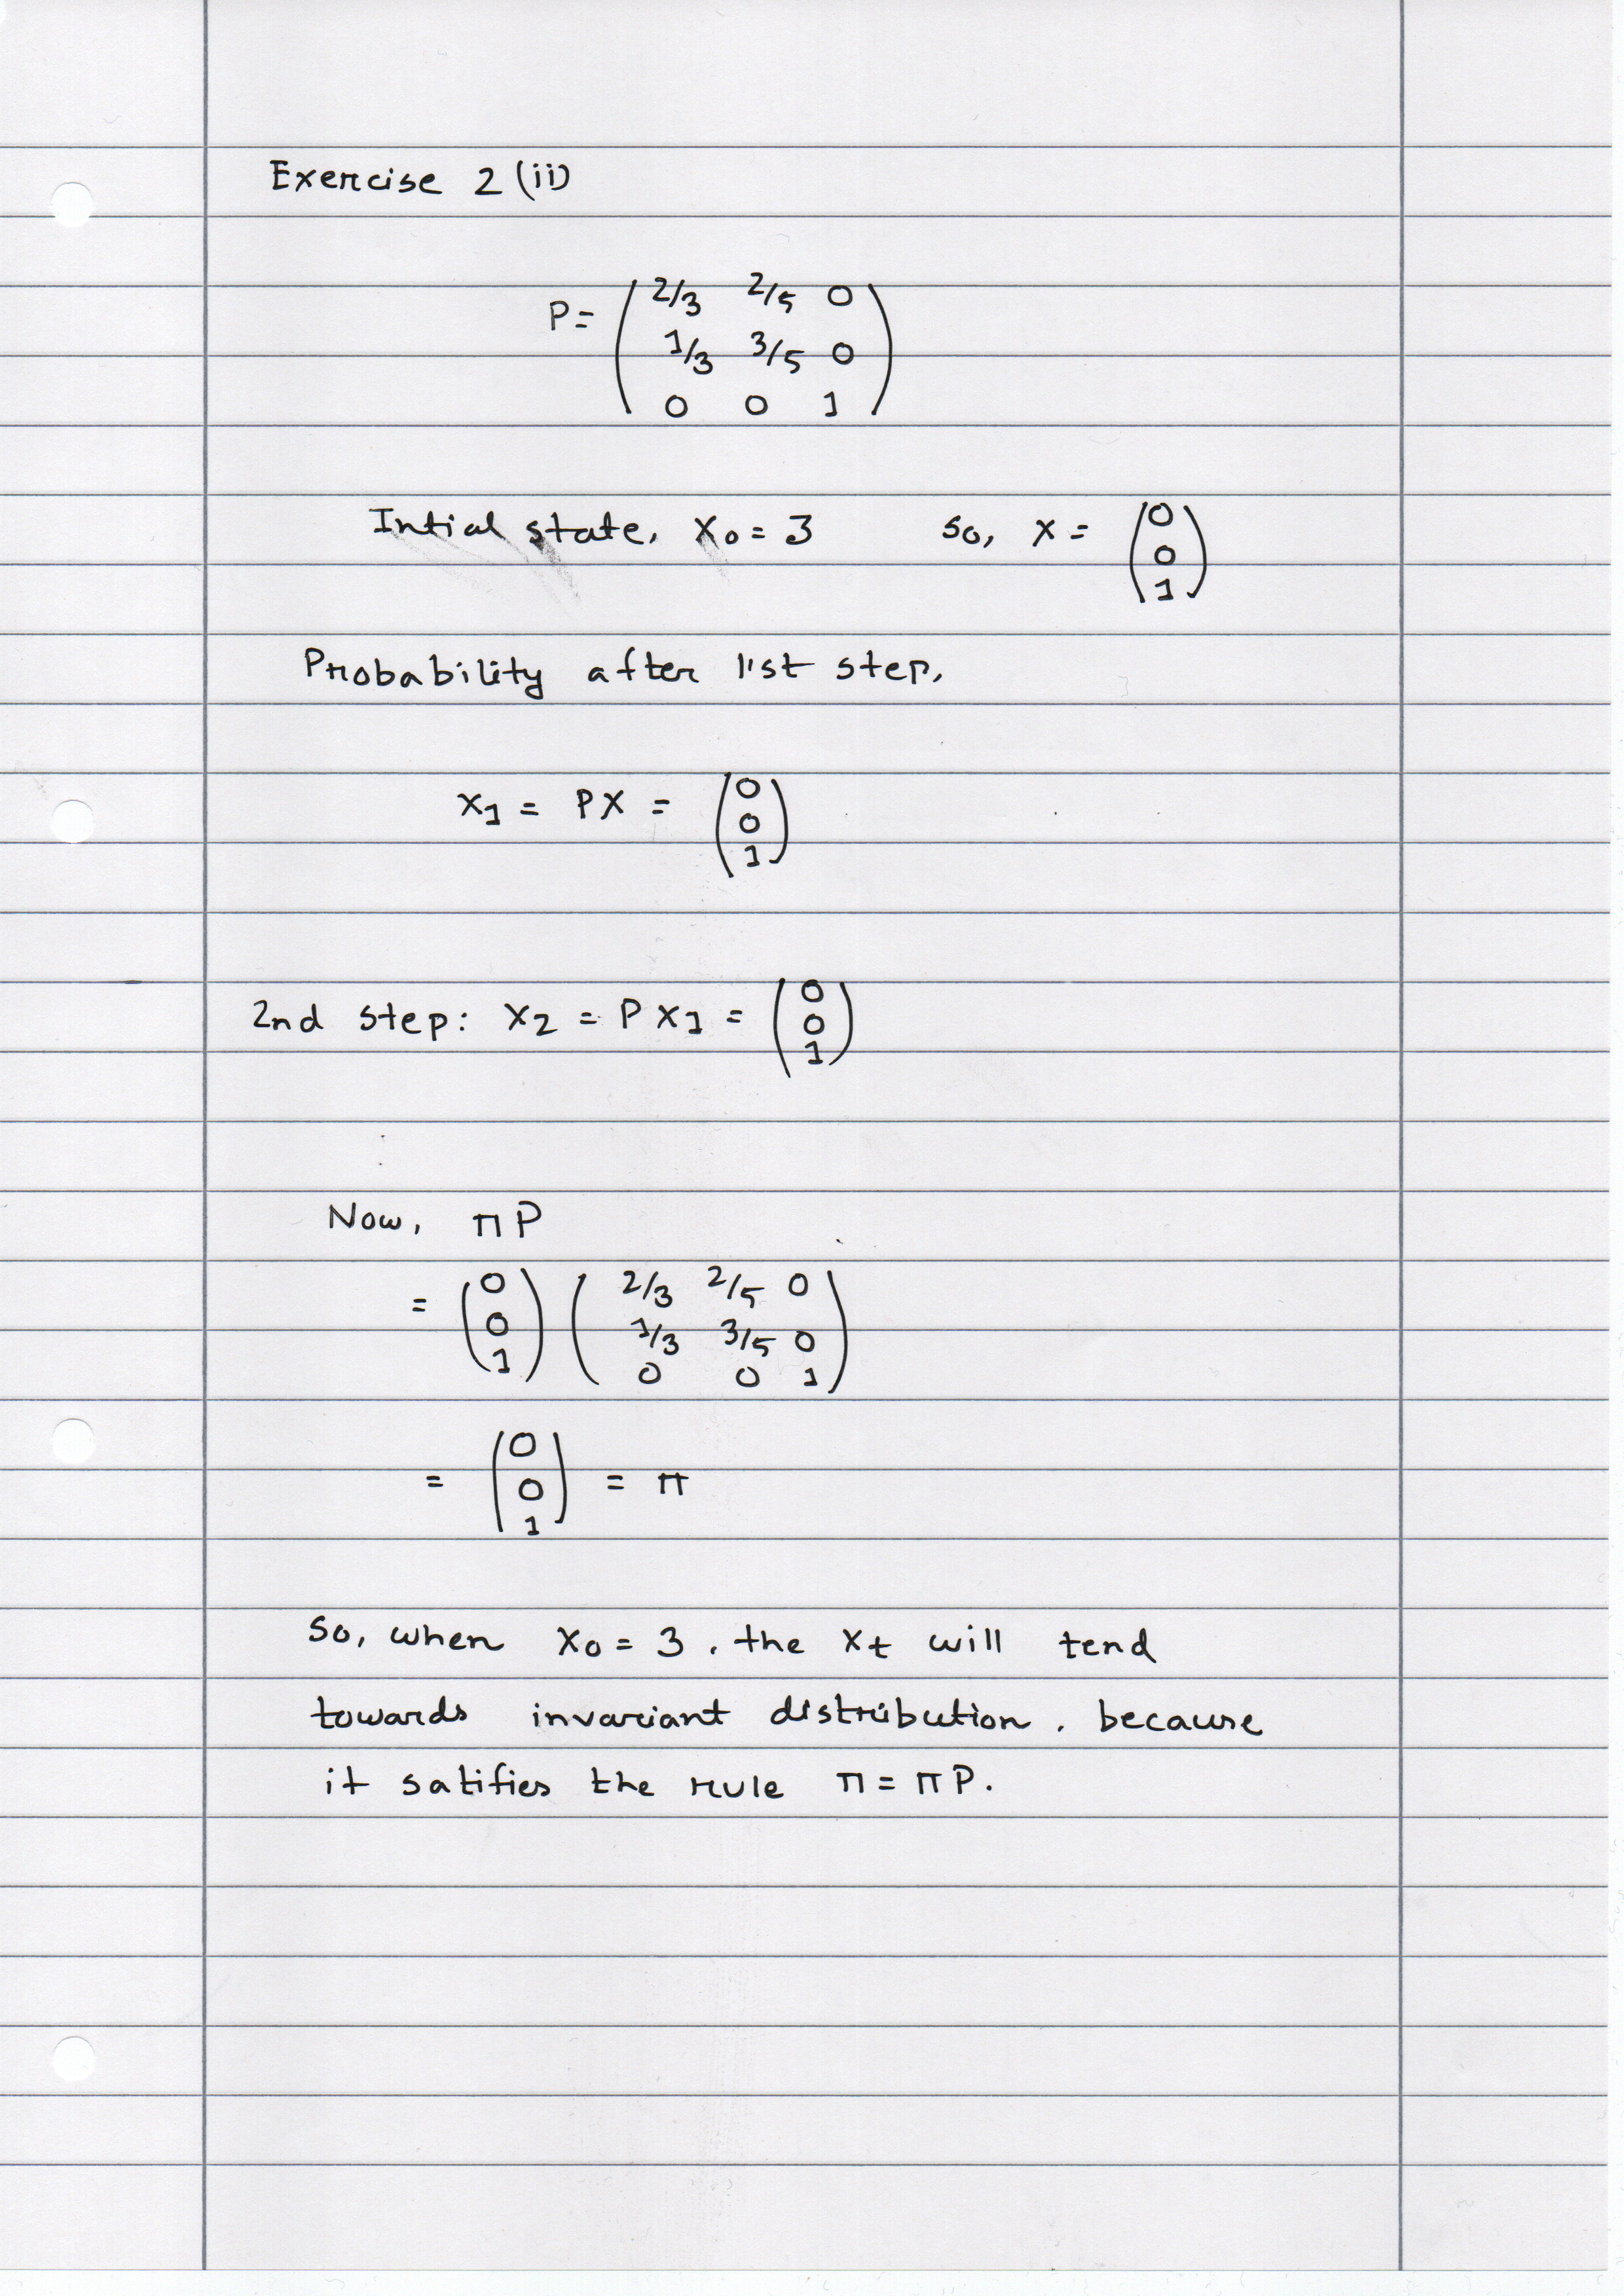 Exercise 2 (ii)
P = ( 2/3 2/5 0
1/3 3/5 0
0 0 1 )
Intial state, X0 = 3 so, X = ( 0
0
1 )
Probability after 1'st step,
X1 = PX = ( 0
0
1 )
2nd step: X2 = P X1 = ( 0
0
1 )
Now, π P
= ( 0
0
1 ) ( 2/3 2/5 0
1/3 3/5 0
0 0 1 )
= ( 0
0
1 ) = π
So, when X0 = 3, the Xt will tend
towards invariant distribution, because
it satifies the rule π = π P.